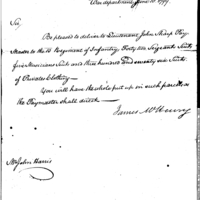 War department June 10. 1799.
Sir,
Be pleased to deliver to Lieutenant John Sharp Pay
Master to the Regiment of Infantry, Forty Sergeants Suits
five Musicians Suits and three hundred and seventy six Suits
of Privates Clothing.
You will have the whole put up in such parcels as
the Paymaster shall direct.
James McHenry.
Mr John Harris